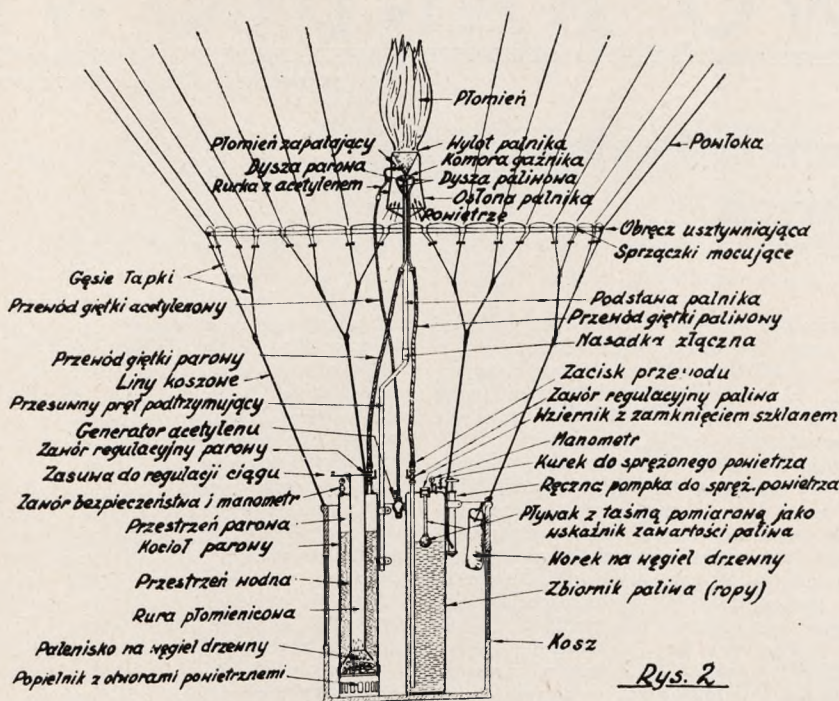 Płomień
Płomień zapalający
Dysza parowa
Rurka z acetylenem
Wylot palnika
Komora gaźnika
Dysza paliwowa
Osłona palnika
Powietrze
Powłoka
Obręcz usztywniająca
Sprzączki mocujące
Gęsie łapki
Przewód giętki acetylenowy
Podstawa palnika
Przewód giętki paliwowy
Nasadka złączna
Przewód giętki parowy
Liny koszowe
Przesuwny pręt podtrzymujący
Generator acetylenu
Zawór regulacyjny parowy
Zasuwa do regulacji ciągu
Zawór bezpieczeństwa i manometr
Przestrzeń parowa
Kocioł parowy
Przestrzeń wodna
Rura płomienicowa
Palenisko na węgiel drzewny
Popielnik z otworami powietrznemi
Zacisk przewodu
Zawór regulacyjny paliwa
Wziernik z zamknięciem szklanem
Manometr
Kurek do sprężonego powietrza
Ręczna pompka do spręż. powietrza
Pływak z taśmą pomiarową jako
wskaźnik zawartości paliwa
Worek na węgiel drzewny
Zbiornik paliwa (ropy)
Kosz
Rys. 2